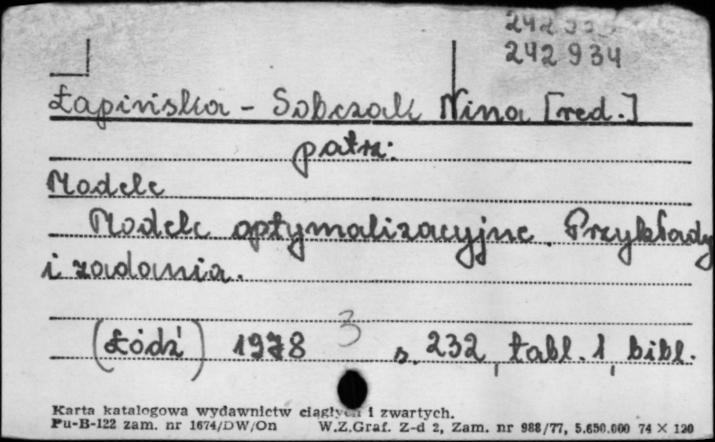 242 93
242 934
Łapińska - Sobczak Nina [red.]
patrz:
Modele
Modele optymalizacyjne. Przykłady
i zadania.
3
(Łódź) 1978 s. 232, tabl. 1, bibl.
Karta katalogowa wydawnictw ciągłych i zwartych.
Pu-B-122 zam. nr 1674/DW/On W.Z.Graf. Z-d 2, Zam. nr 988/77, 5.650.000 74 X 120